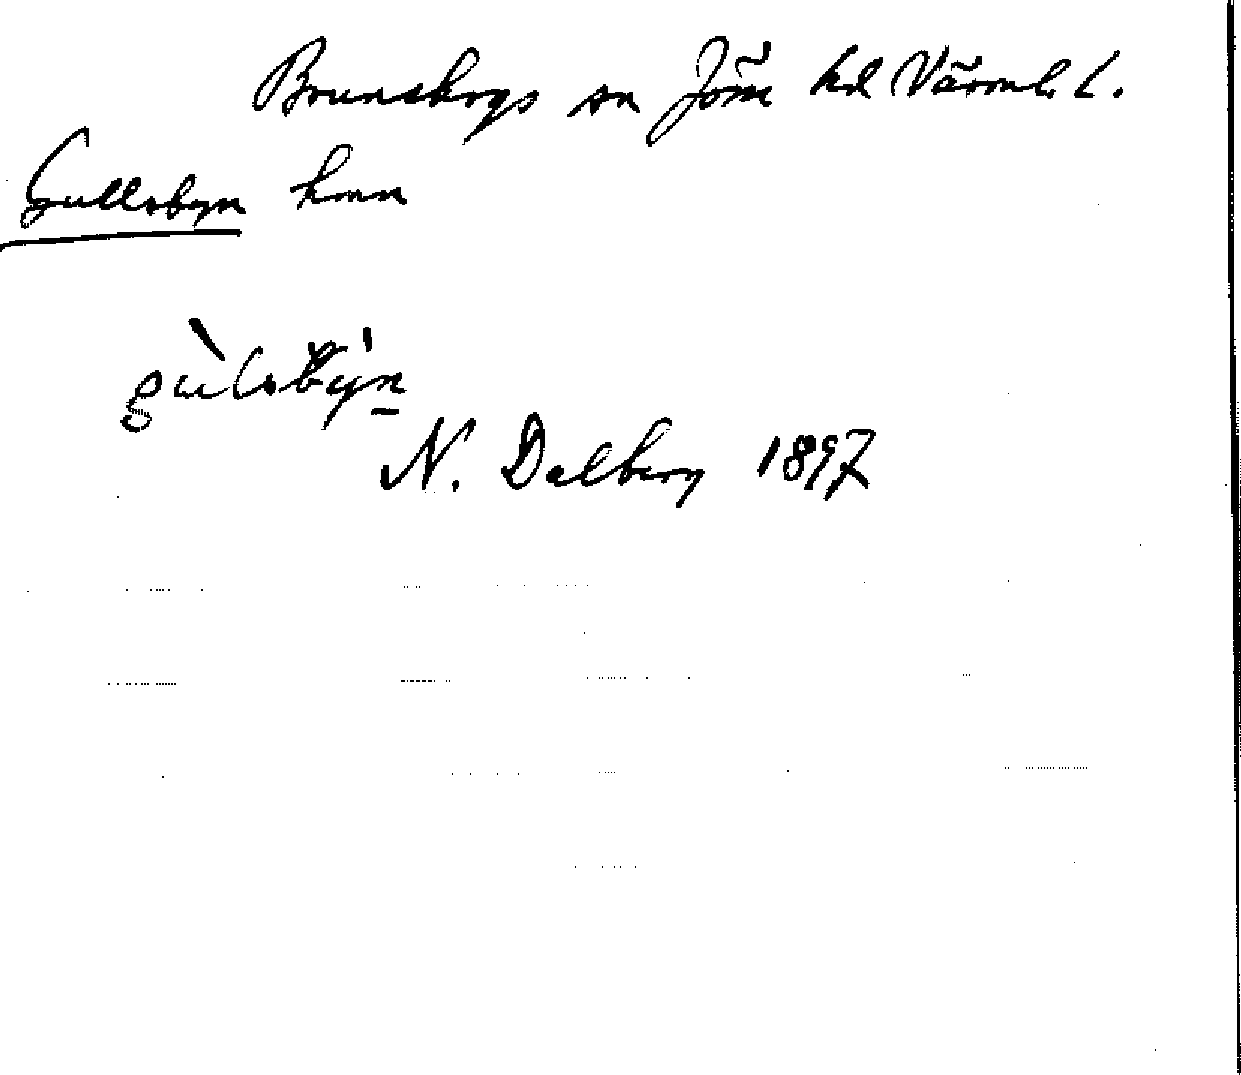 Brunskogs sn Jösse hd Värml. l.
Gullsbyn hmn
gùlsby̍n
N. Dalberg 1897